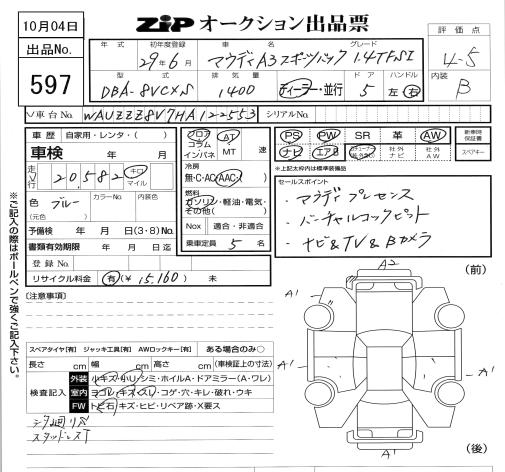 10月04日
ZIP オークション出品票
出品No.
597
年式
初年度登録
車名
グレード
29年6月
アウディA3スポーツバック 1.4TFSI
型式
排気量
ドア
ハンドル
DBA-8VCXS
1400
ディーラー・並行
5
左・右
評価点
4-5
内装
B
車台No.
WAUZZZ8V7HA122553
シリアルNo.
車歴
自家用・レンタ・( )
車検
年 月
走行
20,582
キロ
マイル
色
ブルー
(元色)
カラーNo.
内装色
予備検 年 月 日(3・8)No.
書類有効期限 年 月 日迄
登録No.
リサイクル料金 有(¥ 15,160) 未
フロア
コラム
インパネ
AT
MT
速
冷房
無・C・AC・AAC
燃料
ガソリン・軽油・電気・
その他( )
Nox 適合・非適合
乗車定員 5 名
PS PW SR 革 AW
ナビ エアB
社外ナビ
社外AW
新車時保証書
スペアキー
※上記太枠内は標準装備品
セールスポイント
・アウディプレセンス
・バーチャルコックピット
・ナビ&TV&Bカメラ
※ご記入の際はボールペンで強くご記入下さい。
[注意事項]
スペアタイヤ[有] ジャッキ工具[有] AWロックキー[有] ある場合のみ○
長さ cm 幅 cm 高さ cm (車検証上の寸法)
検査記入
外装 小キズ・小凹・シミ・ホイルA・ドアミラー(A・ワレ)
室内 ヨゴレ・キズ・スレ・コゲ・穴・キレ・破れ・ウキ
FW トビ石・キズ・ヒビ・リペア跡・X要ス
スタッドレスT
(前)
A2
A1
A1
A1
A1
A1
A1
(後)